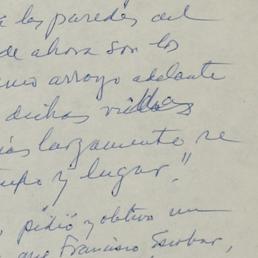 a las paredes del
de ahora son los
mo arroyo adelante
dichas villas
más largamente se
tiempo y lugar."
, pidió y obtuvo un
que Francisco Escobar,